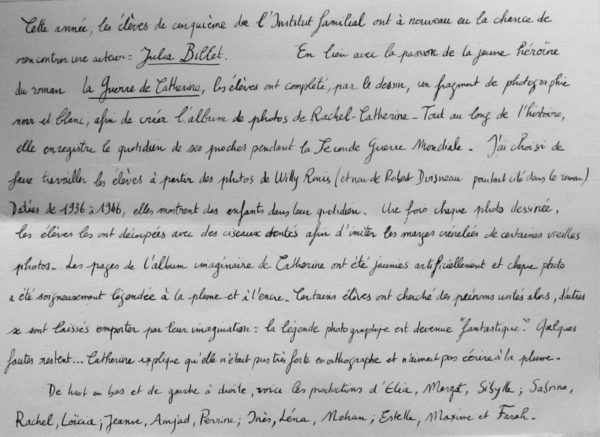 Cette année, les élèves de cinquième de l'Institut familial ont à nouveau eu la chance de
rencontrer une auteur : Julia Billet. En lien avec la passion de la jeune héroïne
du roman La Guerre de Catherine, les élèves ont complété, par le dessin, un fragment de photographie
noir et blanc, afin de créer l'album de photos de Rachel-Catherine. Tout au long de l'histoire,
elle enregistre le quotidien de ses proches pendant la Seconde Guerre Mondiale. J'ai choisi de
faire travailler les élèves à partir des photos de Willy Ronis (et non de Robert Doisneau pourtant cité dans le roman)
Datées de 1936 à 1946, elles montrent des enfants dans leur quotidien. Une fois chaque photo dessinée,
les élèves les ont découpées avec des ciseaux dentés afin d'imiter les marges crénelées de certaines vieilles
photos. Les pages de l'album imaginaire de Catherine ont été jaunies artificiellement et chaque photo
a été soigneusement légendée à la plume et à l'encre. Certains élèves ont cherché des prénoms usités alors, d'autres
se sont laissés emporter par leur imagination : la légende photographique est devenue "fantastique". Quelques
fautes restent... Catherine explique qu'elle n'était pas très forte en orthographe et n'aimait pas écrire à la plume.
De haut en bas et de gauche à droite, voici les productions d'Elia, Margot, Sibylle ; Sabrina,
Rachel, Loïcia ; Jeanne, Amjad, Perrine ; Inès, Léna, Mohan ; Estelle, Maxime et Farah.